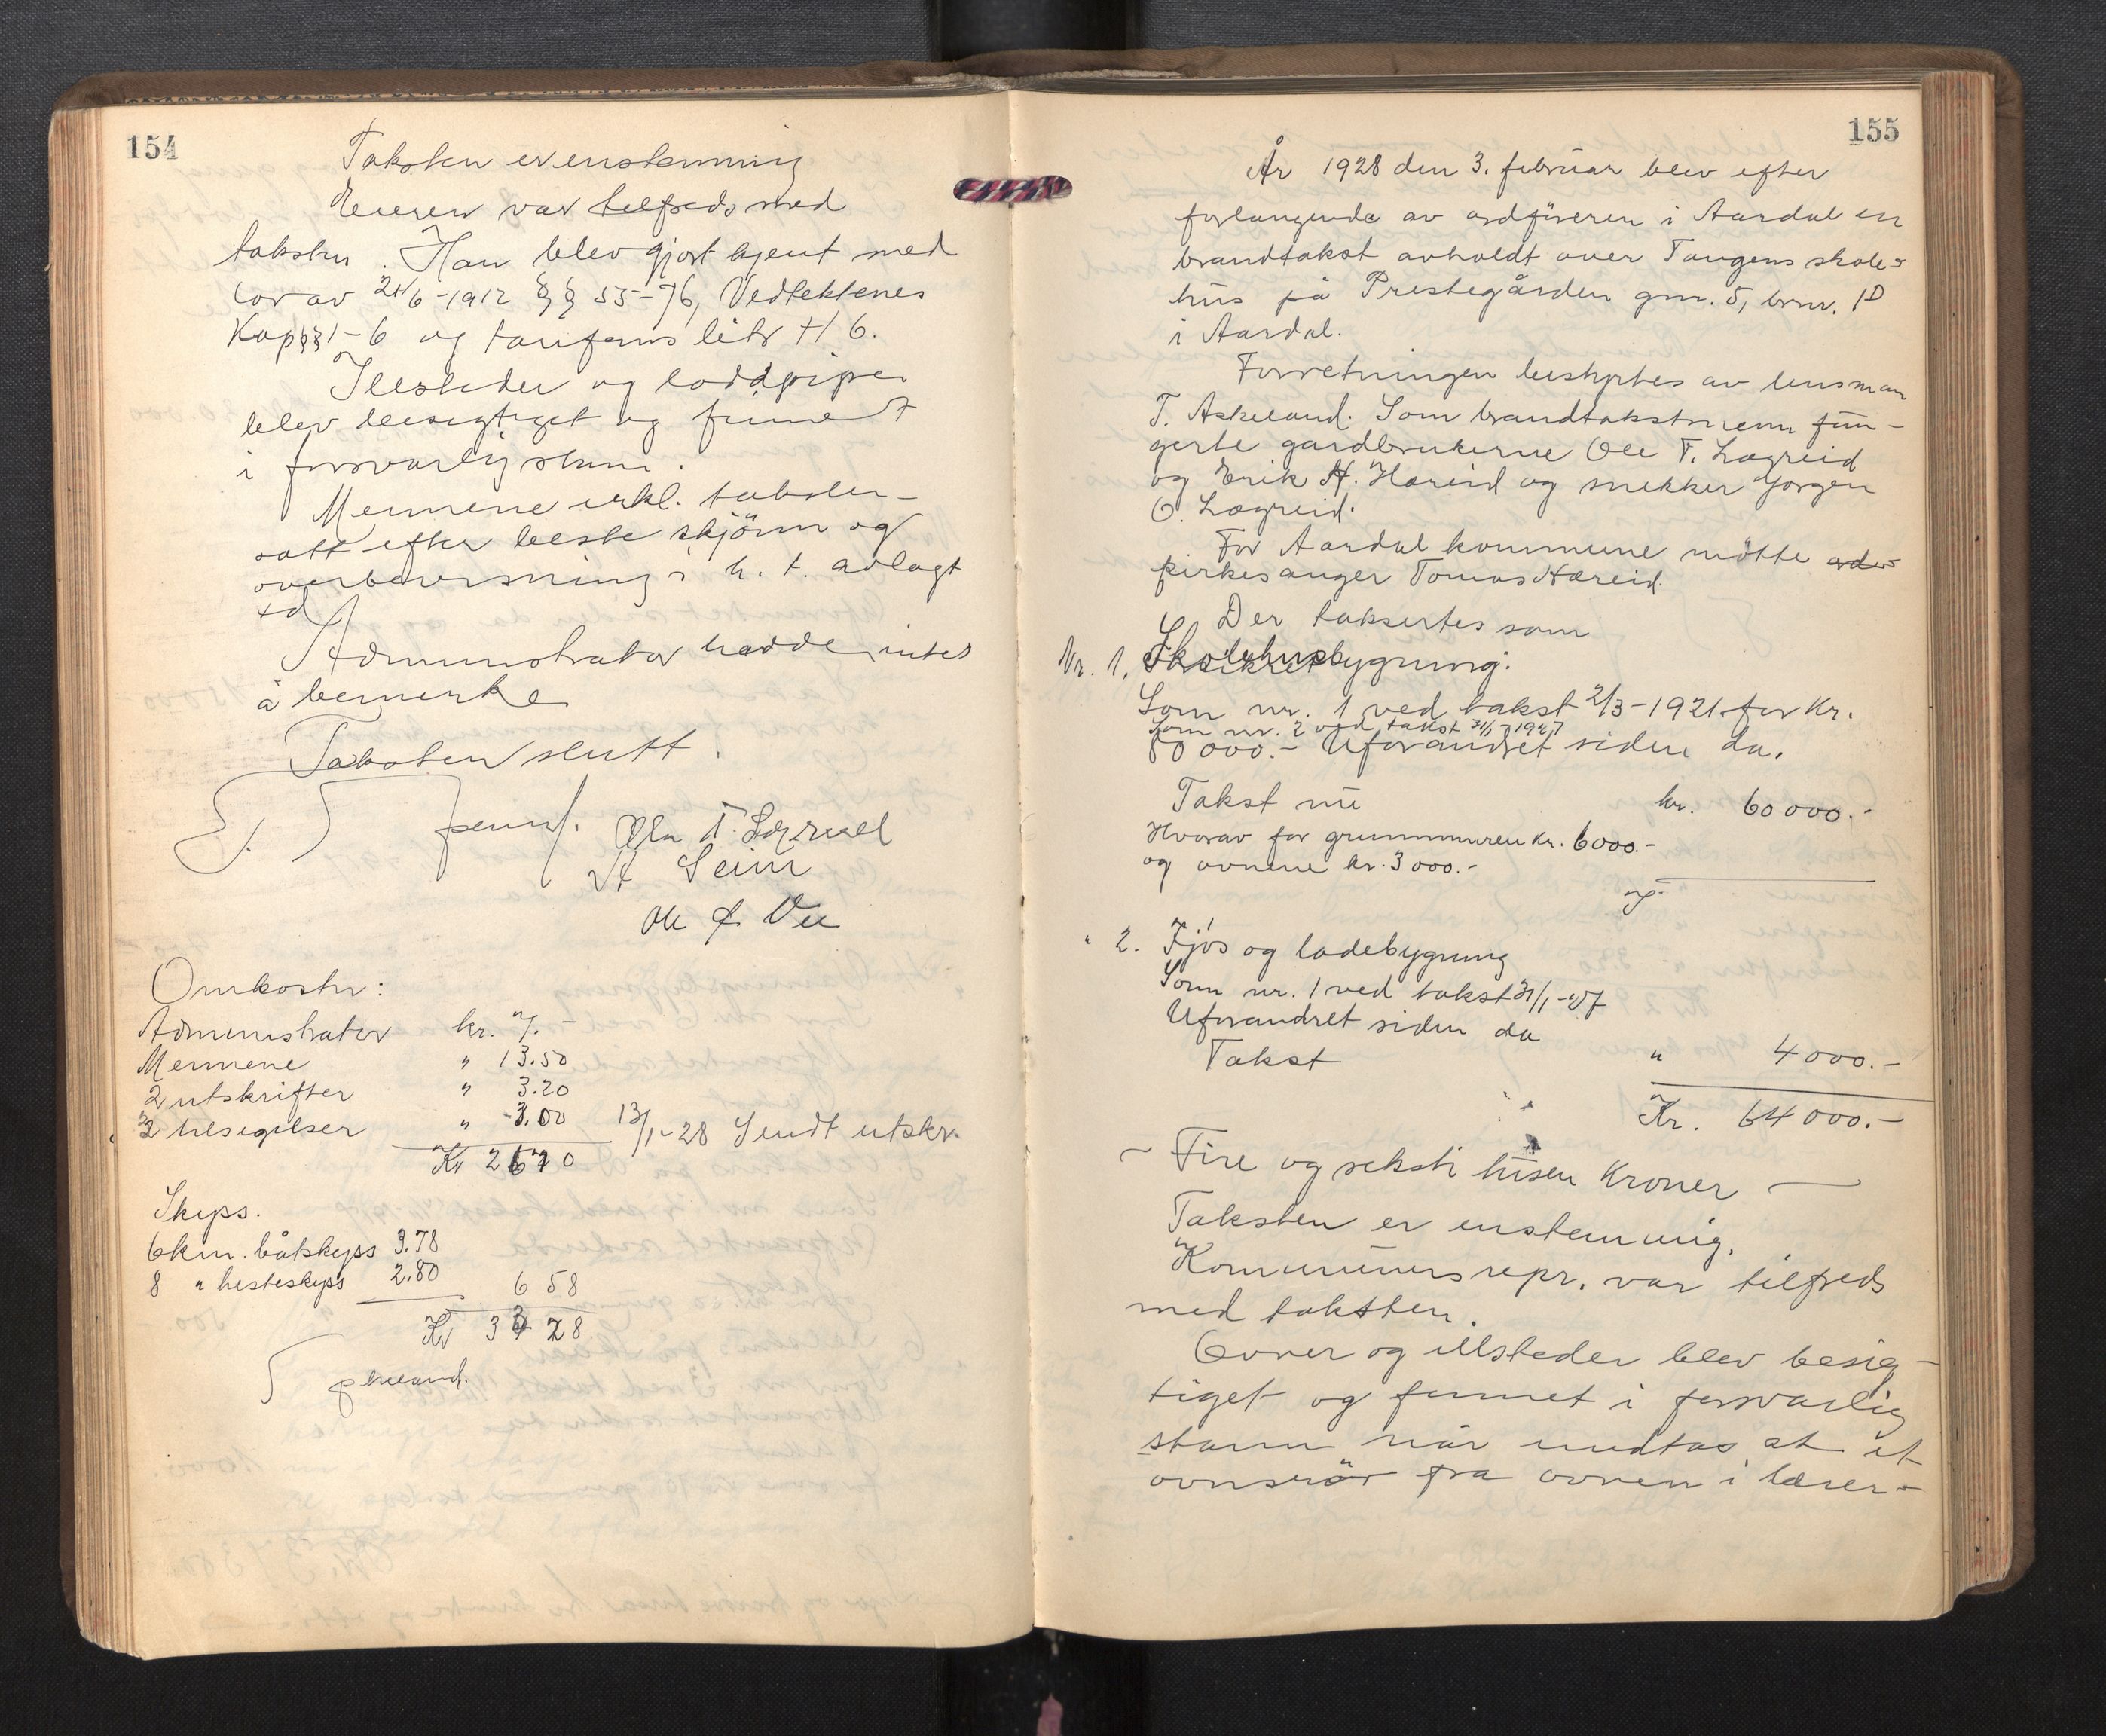 154
Taksten er enstemmig
Eieren var tilfreds med
taksten. Han blev gjort kjent med
lov av 21/6-1912 §§ 55-76, Vedtektenes
Kap §§ 1-6 og tariffens litr H 6.
Ildsteder og loddpiper
blev besigtiget og funnet
i forsvarlig stann.
Mennene erkl. taksten
satt efter beste skjönn og
overbevisning i h. t. avlagt
ed
Administrator hadde intet
å bemerke
Taksten slutt.
Ola T. Lægreid
Seim
Ole Ø. Vee
Omkostn:
Administrator kr. 7.-
Mennene " 13.50
2 utskrifter " 3.20
2 besigelser " 3.00 13/1-28 Sendt utskr.
Kr 26 70
Skyss.
6 km. båtskyss 3.78
8 " hesteskyss 2.80 6 58
Kr 33 28
155
År 1928 den 3. februar blev efter
forlangende av ordföreren i Aardal en
brandtakst avholdt over Tangens skole-
hus på Prestegården gnr. 5, brnr. 1
i Aardal.
Forretningen bestyrtes av lensman
T. Askeland. Som brandtakstmenn fun-
gerte gardbrukerne Ole T. Lægreid
og Erik H. Hæreid og snekker Jørgen
O. Lægreid.
For Aardal kommune mötte
kirkesanger Tomas Hæreid.
Der taksertes som
Nr. 1. Skolehusbygning.
Som nr. 1 ved takst 2/3-1921 for kr.
Som nr. 2 ved takst 31/1 1927
80 000.- Uforandret siden da.
Takst nu kr. 60 000.-
Hvorav for grunnmuren kr. 6000.-
og ovnene kr. 3 000.-
" 2. Fjös og ladebygning
Som nr. 1 ved takst 31/1-27
Uforandret siden da
Takst " 4 000.-
Kr. 64 000.-
- Fire og seksti tusen Kroner -
Taksten er enstemmig.
Kommunens repr. var tilfreds
med taksten.
Ovner og illsteder blev besig-
tiget og funnet i forsvarlig
stann når undtas at et
ovnsrör fra ovnen i lærer-